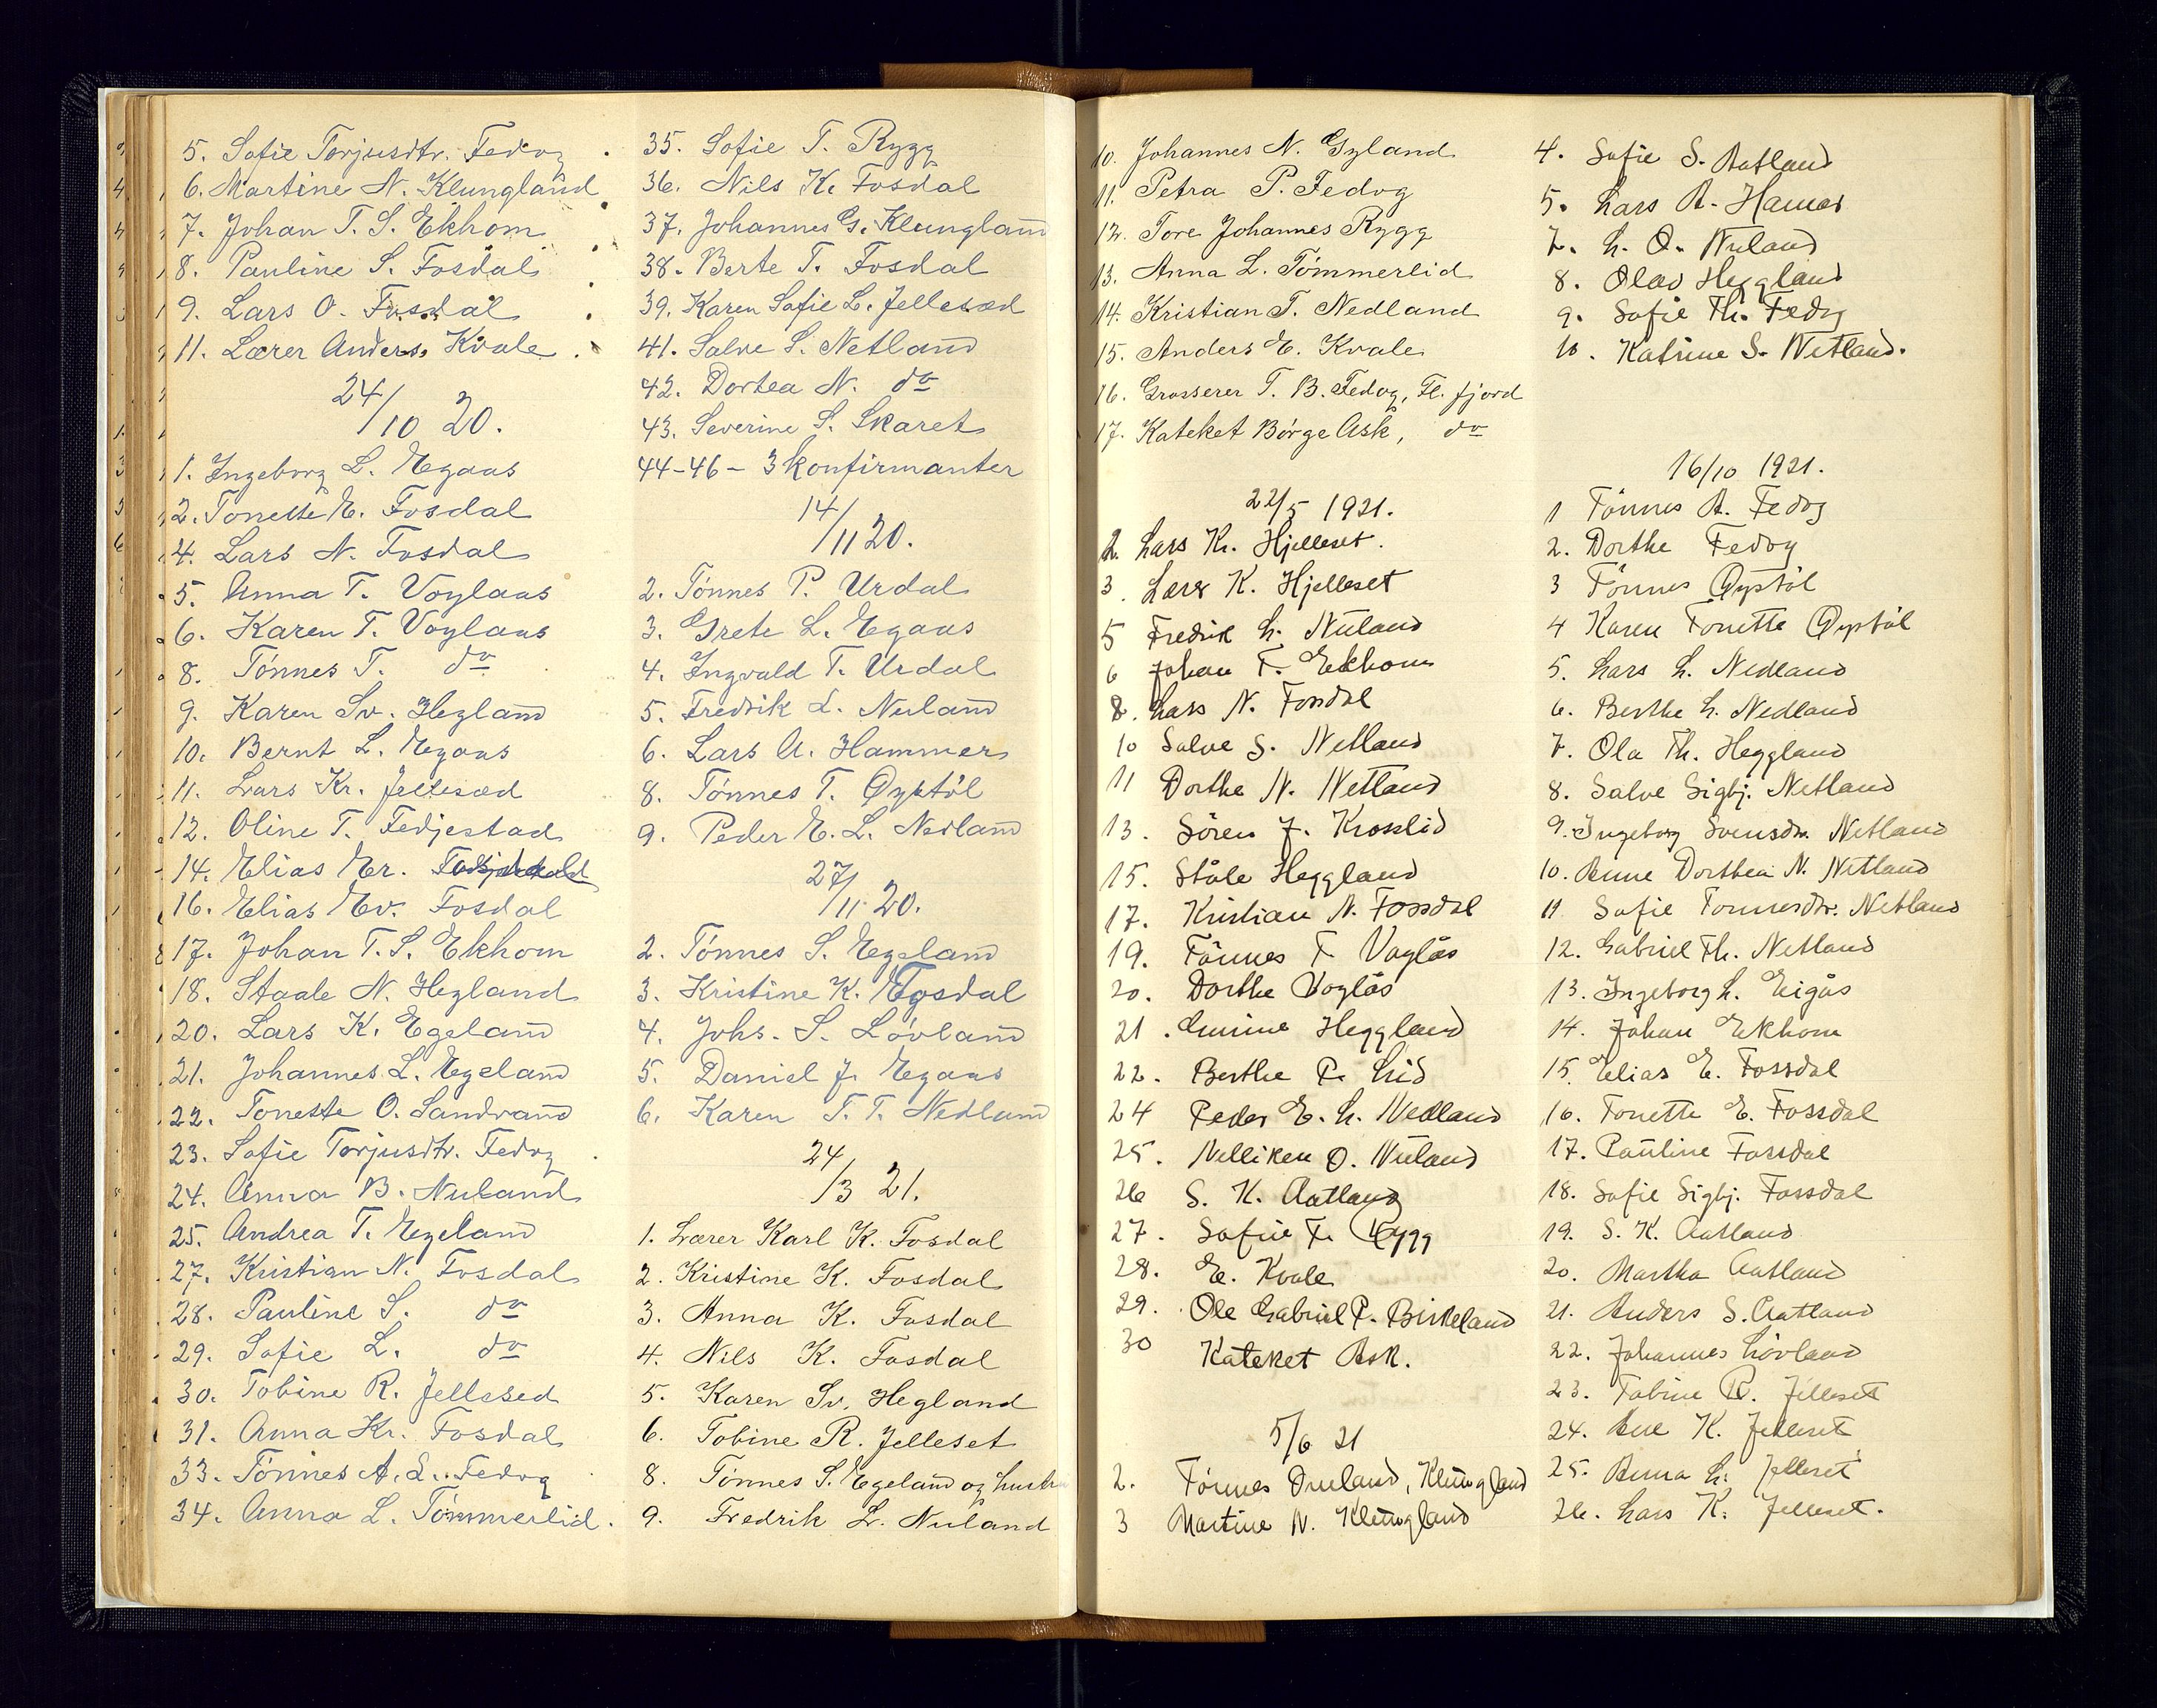 5. Sofie Torjusdtr. Fedog
6. Martine N. Klungland
7. Johan T. S. Ekhom
8. Pauline S. Fosdal
9. Lars O. Fosdal
11. Lærer Anders Kvale
24/10 20.
1. Ingeborg L. Egaas
2. Tonette E. Fosdal
4. Lars N. Fosdal
5. Anna T. Voglaas
6. Karen T. Voglaas
8. Tónnes T. do
9. Karen Sv. Hegland
10. Bernt L. Egaas
11. Lars Kr. Jellesæd
12. Oline T. Fedjestad
14. Elias Er.
16. Elias Ev. Fosdal
17. Johan T. S. Ekhom
18. Staale N. Hegland
20. Lars K. Egeland
21. Johannes L. Egeland
22. Tonette O. Sandvand
23. Sofie Torjusdtr. Fedog
24. Anna B. Nuland
25. Andrea T. Egeland
27. Kristian N. Fosdal
28. Pauline S. do
29. Sofie L. do
30. Tobine R. Jellesed
31. Anna Kr. Fosdal
33. Tónnes A. L. Fedog
34. Anna L. Tómmerlid.
35. Sofie T. Rygg
36. Nils K. Fosdal
37. Johannes G. Klungland
38. Berte T. Fosdal
39. Karen Sofie L. Jellesæd
41. Salve S. Netland
42. Dortea N. do
43. Severine S. Skaret
44-46 - 3 konfirmanter
14/11 20.
2. Tónnes P. Urdal
3. Grete L. Egaas
4. Ingvald T. Urdal
5. Fredrik L. Nuland
6. Lars A. Hammer
8. Tónnes T. Óystól
9. Peder E. L. Nedland
27/11 20.
2. Tónnes S. Egeland
3. Kristine K. Fosdal
4. Johs. S. Lóvland
5. Daniel J. Egaas
6. Karen T. T. Nedland
24/3 21.
1. Lærer Karl K. Fosdal
2. Kristine K. Fosdal
3. Anna K. Fosdal
4. Nils K. Fosdal
5. Karen Sv. Hegland
6. Tobine R. Jelleset
8. Tónnes S. Egeland og hustru
9. Fredrik L. Nuland
10. Johannes N. Gyland
11. Petra P. Fedog
12. Tore Johannes Rygg
13. Anna L. Tómmerlid
14. Kristian T. Nedland
15. Anders E. Kvale
16. Grosserer T. B. Fedog, Fl. fjord
17. Kateket Bórge Ask, do
22/5 1921.
2. Lars Kr. Hjelleset.
3. Lars K. Hjelleset
5 Fredrik L. Nuland
6 Johan T. Ekhom
8. Lars N. Fossdal
10 Salve S. Netland
11 Dorthe N. Netland
13. Sören J. Krosslid
15. Ståle Heggland
17. Kristian N. Fossdal
19. Tönnes T. Voglås
20. Dorthe Voglås
21. Heggland
22. Berthe P. Lid
24 Peder E. L. Nedland
25. Nelliken O. Nuland
26 S. K. Aatland
27. Sofie T. Rygg
28. E. Kvale
29. Ole Gabriel P. Birkeland
30 Kateket Ask.
5/6 21
2. Tönnes Omland, Klungland
3 Martine N. Klungland
4. Sofie S. Aatland
5. Lars A. Hamar
7. L. O. Nuland
8. Olav Heggland
9. Sofie Th. Fedog
10. Katrine S. Netland.
16/10 1921.
1 Tönnes A. Fedog
2. Dorthe Fedog
3 Tönnes Öystöl
4 Karen Tonette Öystöl
5. Lars L. Nedland
6. Berthe L. Nedland
7. Ola Th. Heggland
8. Salve Sigbj. Netland
9. Ingeborg Svensdtr. Netland
10. Anne Dorthea N. Netland
11 Sofie Tönnesdtr. Netland
12. Gabriel Th. Netland
13. Ingeborg L. Eigås
14. Johan Ekhom
15. Elias E. Fossdal
16. Tonette E. Fossdal
17. Pauline Fossdal
18. Sofie Sigbj. Fossdal
19. S. K. Aatland
20. Martha Aatland
21. Anders S. Aatland
22. Johannes Lövland
23. Tobine R. Jelleset
24. Ane K. Jelleset
25. Anna L. Jelleset
26. Lars K. Jelleset.